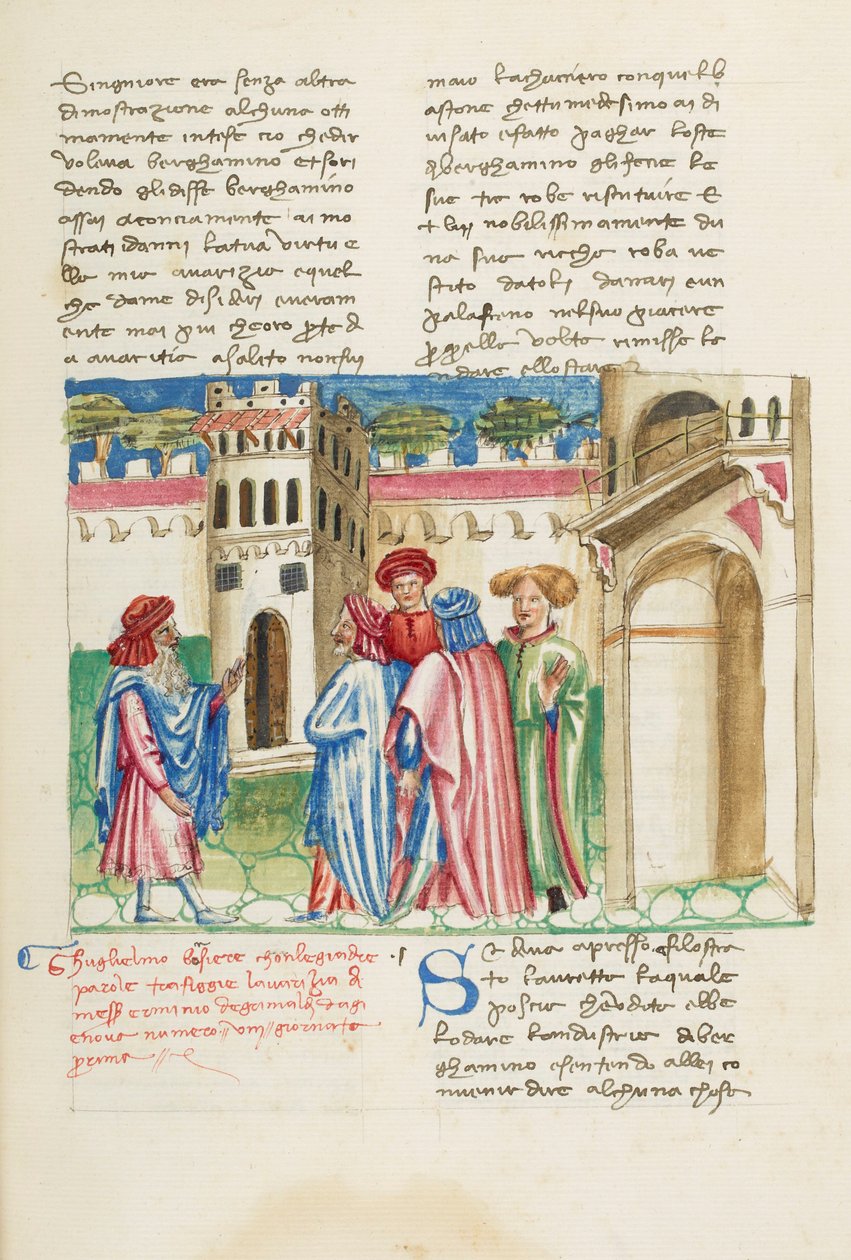 Singniore era senza altra
dimostrazione alchuna otti
mamente intese cio che dir
voleva berghamino et sori
dendo gli disse berghamino
assai aconciamente ai mo
strati i danni la tua virtu e
lla mia avarizia e quel
che da me disideri e veram
ente mai piu che ora p te d
a avaritia asalito non fui
maio la chaccero con quel b
astone che ttu medesimo ai di
visato e fatto paghar loste
d berghamino gli fecie le
sue tre robe ristituire E
lui nobilissimamente du
na sua riccha roba ve
stito datoli danari e un
palafreno nel suo piacere
p quella volta rimisse le
ndare ello stare
Ghuglielmo borsiere chon legiadre
parole trafiggie lavarizia d
mess erminio de grimaldi da gi
enova numero viii giornata
prima
Sedeva apresso a filostra
to lauretta la quale
poscia che udito ebbe
lodare landustria d ber
ghamino e sentendo a llei co
nvenir dire alchuna chosa